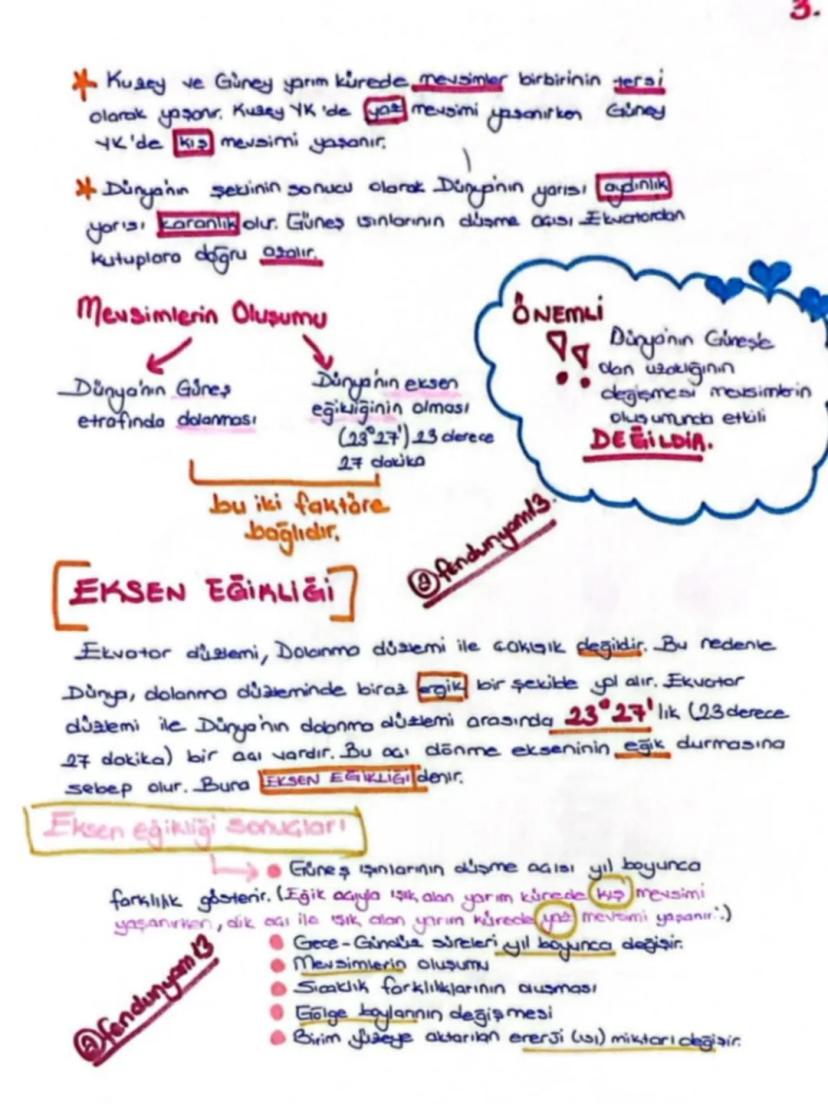 3.
* Kuzey ve Güney yarım kürede mevsimler birbirinin tersi
olarak yaşanır. Kuzey YK'de yaz mevsimi yaşanırken Güney
YK'de kış mevsimi yaşanır.
* Dünya'nın şeklinin sonucu olarak Dünya'nın yarısı aydınlık
yarısı karanlık olur. Güneş ışınlarının düşme açısı Ekvatordan
kutuplara doğru azalır.
Mevsimlerin Oluşumu
Dünya'nın Güneş
etrafında dolanması
Dünya'nın eksen
eğikliğinin olması
(23°27') 23 derece
27 dakika
bu iki faktöre
bağlıdır.
ÖNEMLİ
!! Dünya'nın Güneşle
olan uzaklığının
değişmesi mevsimlerin
oluşumunda etkili
DEĞİLDİR.
@fendunyam13
[EKSEN EĞİKLİĞİ]
Ekvator düzlemi, Dolanma düzlemi ile çakışık değildir. Bu nedenle
Dünya, dolanma düzleminde biraz eğik bir şekilde yol alır. Ekvator
düzlemi ile Dünya'nın dolanma düzlemi arasında 23°27' lık (23 derece
27 dakika) bir açı vardır. Bu açı dönme ekseninin eğik durmasına
sebep olur. Buna EKSEN EĞİKLİĞİ denir.
Eksen eğikliği sonuçları
• Güneş ışınlarının düşme açısı yıl boyunca
farklılık gösterir. (Eğik açıyla ışık alan yarım kürede kış mevsimi
yaşanırken, dik açı ile ışık alan yarım kürede yaz mevsimi yaşanır.)
• Gece-Gündüz süreleri yıl boyunca değişir.
• Mevsimlerin oluşumu
• Sıcaklık farklılıklarının oluşması
• Gölge boylarının değişmesi
• Birim yüzeye aktarılan enerji (ısı) miktarı değişir.
@fendunyam13